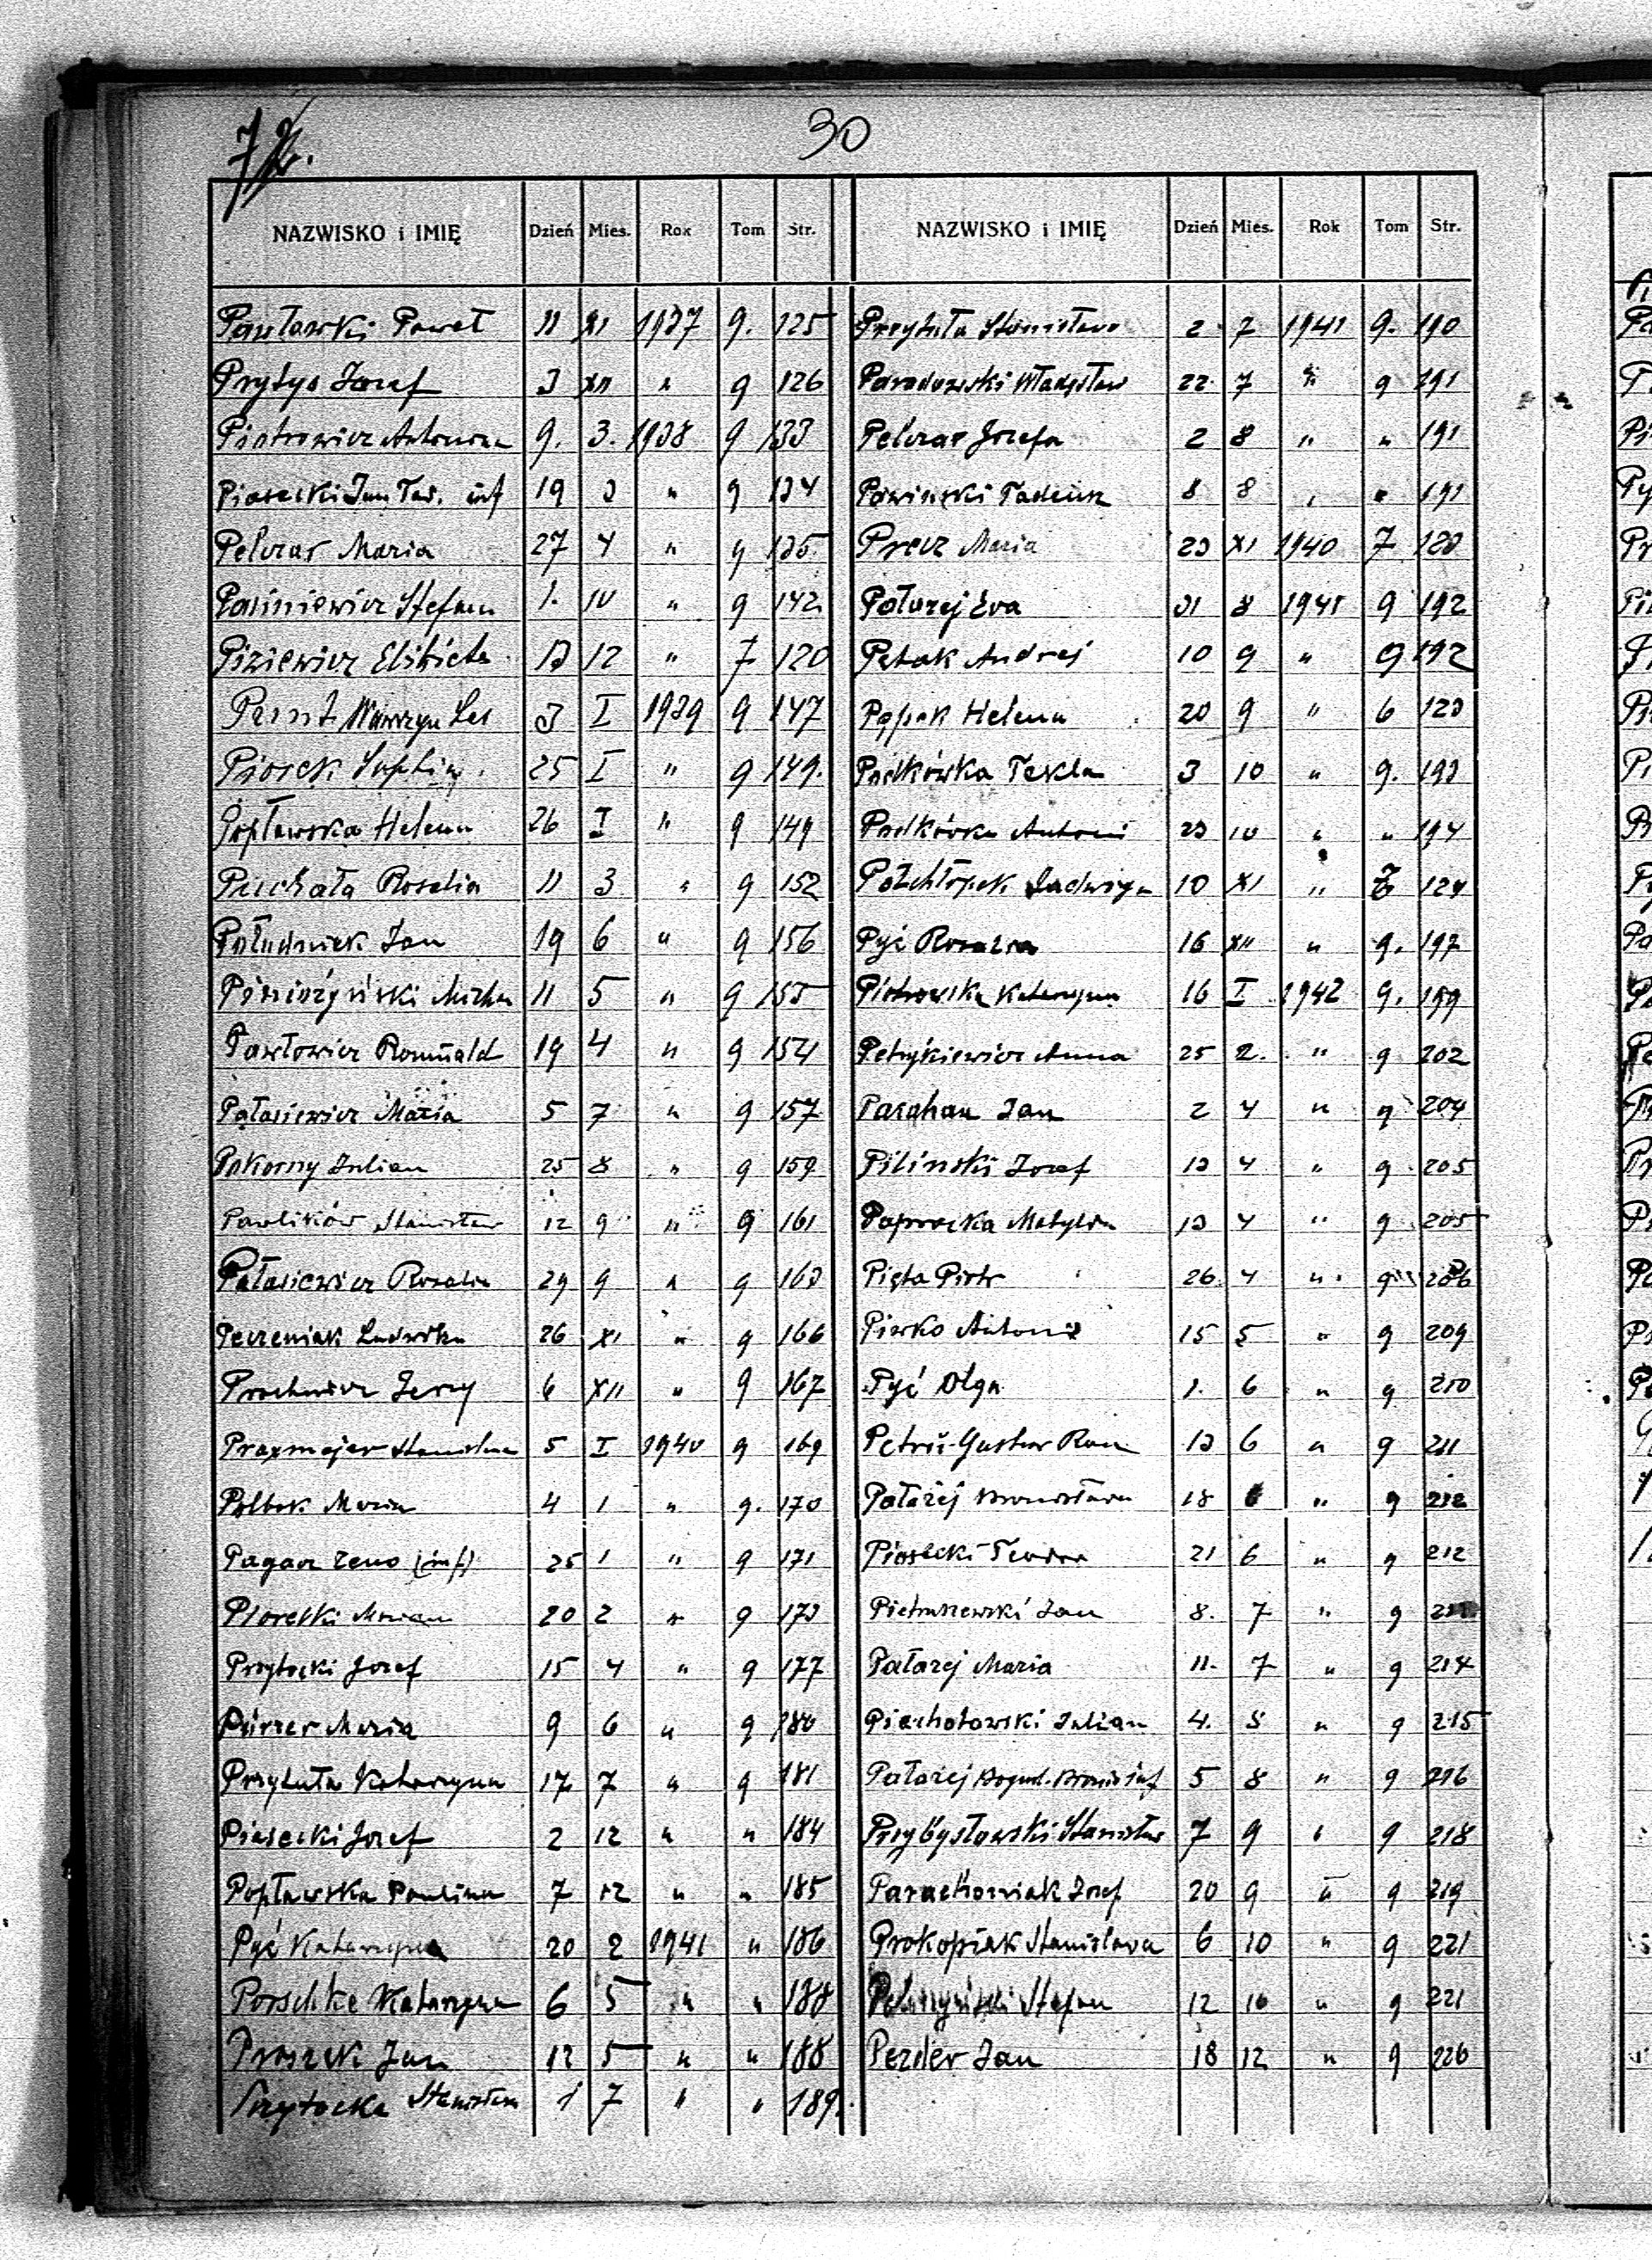 30
NAZWISKO i IMIĘ Dzień Mies. Rok Tom Str.
Pawławski Paweł 11 XI 1937 9. 125
Prytys Józef 3 XII " 9 126
Piotrowicz Antonina 9. 3. 1938 9 133
Piasecki Jan Tad. inf 19 3 " 9 134
Pelczar Maria 27 4 " 9 135
Stefan 1. IV " 9 142
Piziewicz Elżbieta 13 12 " 7 120
3 I 1939 9 147
Piosek 25 I " 9 149.
Popławska Helena 26 I " 9 149
Puchała Rosalia 11 3 " 9 152
Południak Jan 19 6 " 9 156
11 5 " 9 155
Pawłowicz Romuald 19 4 " 9 154
Pałasiewicz Maria 5 7 " 9 157
Pokorny Julian 25 8 " 9 159
Pawlików Stanisław 12 9 " 9 161
Pałasiewicz Rozalia 29 9 " 9 163
Peczeniak Ludwika 26 XI " 9 166
Prochowicz Jerzy 6 XII " 9 167
Praxmajer 5 I 1940 9 169
Polbok Maria 4 1 " 9. 170
Pagacz Zeno (inf) 25 1 " 9 171
Ploretki Marian 20 2 " 9 173
Przytocki Jozef 15 4 " 9 177
Pürzer Maria 9 6 " 9 180
Przytuła Katarzyna 17 7 " 9 181
Piasecki Jozef 2 12 " " 184
Popławska Paulina 7 12 " " 185
Pyć Katarzyna 20 2 1941 " 186
Porschke Katarzyna 6 5 " " 188
Proszek Jan 12 5 " " 188
Przytocka Stanisława 1 7 " " 189.
NAZWISKO i IMIĘ Dzień Mies. Rok Tom Str.
Przytuła Stanisława 2 7 1941 9. 190
Władysław 22 7 " 9 191
Pelczar Jozefa 2 8 " " 191
Pawiński Tadeusz 8 8 " " 191
Precz Maria 23 XI 1940 7 123
Połarzej Ewa 31 8 1941 9 192
Pętak Andrej 10 9 " 9 192
Pępek Helena 20 9 " 6 123
Podkówka Tekla 3 10 " 9. 193
Podkówka Antoni 23 10 " " 194
Półchłopek Jadwiga 10 XI " 7 124
Pyć Rozalia 16 XII " 9. 197
Piotrowska Katarzyna 16 I 1942 9. 199
Petrykiewicz Anna 25 2. " 9 202
Parahan Jan 2 4 " 9 204
Piliński Jozef 13 4 " 9 205
Paprocka Matylda 13 4 " 9 205
Pięta Piotr 26 4 " 9 206
Piwko Antoni 15 5 " 9 209
Pyć Olga 1. 6 " 9 210
Petri Gustaw 13 6 " 9 211
Pałarzej Bronisława 18 6 " 9 212
Piasecki Teodor 21 6 " 9 212
Pietruszewski Jan 8. 7 " 9
Pałarzej Maria 11. 7 " 9 214
Piechotowski Julian 4. 8 " 9 215
Pałarzej Bogusł. Bronis inf 5 8 " 9 216
Przybysławski Stanisław 7 9 " 9 218
Parachoniak Józef 20 9 " 9 219
Prokopiak Stanisława 6 10 " 9 221
Stefan 12 10 " 9 221
Pezder Jan 18 12 " 9 226